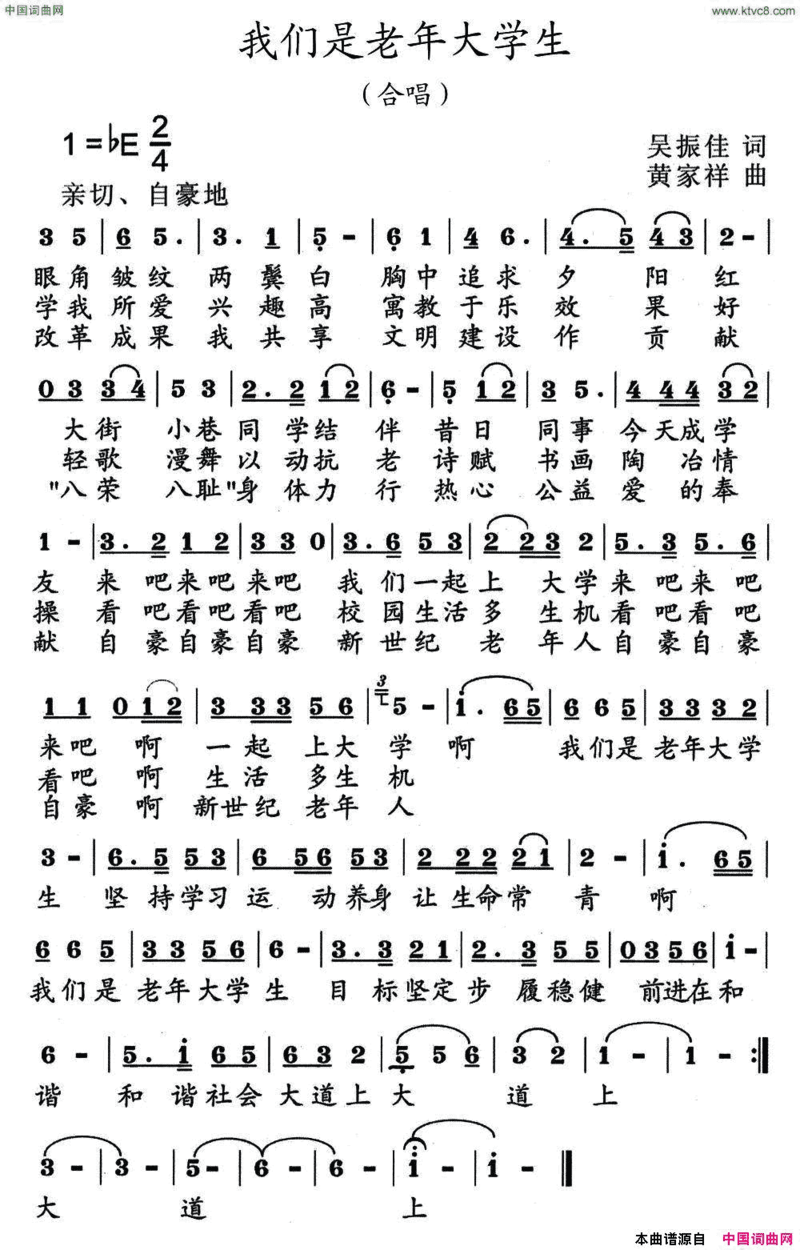 中国词曲网
www.ktvc8.com
我们是老年大学生
（合唱）
1=♭E 2/4
吴振佳 词
黄家祥 曲
亲切、自豪地
3 5 | 6 5. | 3. 1 | 5 - | 6 1 | 4 6. | 4. 5 4 3 | 2 - |
眼角皱纹两鬓白 胸中追求夕阳红
学我所爱兴趣高 寓教于乐效果好
改革成果我共享 文明建设作贡献
0 3 3 4 | 5 3 | 2. 2 1 2 | 6 - | 5 1 2 | 3 5. | 4 4 4 3 2 |
大街小巷同学结伴昔日同事今天成学
轻歌漫舞以动抗老诗赋书画陶冶情
"八荣八耻"身体力行热心公益爱的奉
1 - | 3. 2 1 2 | 3 3 0 | 3. 6 5 3 | 2 2 3 | 5. 3 5. 6 |
友来吧来吧来吧我们一起上大学来吧来吧
操看吧看吧看吧校园生活多生机看吧看吧
献自豪自豪自豪新世纪老年人自豪自豪
1 1 0 1 2 | 3 3 3 5 6 | 3 5 - | i. 6 5 | 6 6 5 | 3 3 3 2 |
来吧啊一起上大学啊我们是老年大学
看吧啊生活多生机
自豪啊新世纪老年人
3 - | 6. 5 5 3 | 6 5 6 5 3 | 2 2 2 2 1 | 2 - | i. 6 5 |
生坚持学习运动养身让生命常青啊
6 6 5 | 3 3 5 6 | 6 - | 3. 3 2 1 | 2. 3 5 5 | 0 3 5 6 | i - |
我们是老年大学生目标坚定步履稳健前进在和
6 - | 5. i 6 5 | 6 3 2 | 5 5 6 | 3 2 | 1 - | 1 - :||
谐和谐社会大道上大道上
3 - | 3 - | 5 - | 6 - | 6 - | i - | i - ||
大道上
本曲谱源自 中国词曲网